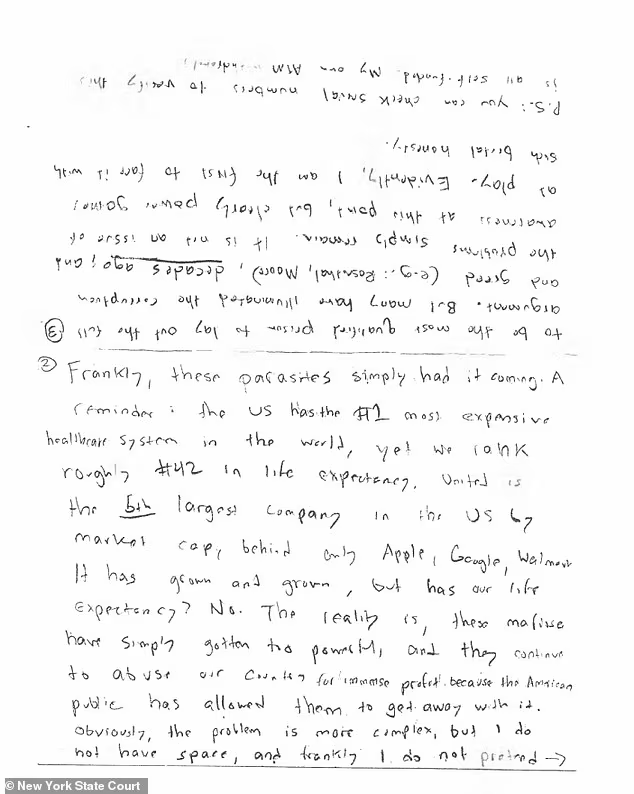 ② Frankly, these parasites simply had it coming. A
reminder: the US has the #1 most expensive
healthcare system in the world, yet we rank
roughly #42 in life expectancy. United is
the 5th largest company in the US by
market cap, behind only Apple, Google, Walmart.
It has grown and grown, but has our life
expectancy? No. The reality is, these mafiosi
have simply gotten too powerful, and they continue
to abuse our country for immense profit because the American
public has allowed them to get away with it.
Obviously, the problem is more complex, but I do
not have space, and frankly I do not pretend →
③ to be the most qualified person to lay out the full
argument. But many have illuminated the corruption
and greed (e.g.: Rosenthal, Moore), decades ago; and
the problems simply remain. It is not an issue of
awareness at this point, but clearly power games
at play. Evidently, I am the first to face it with
such brutal honesty.
P.S.: you can check serial numbers to verify this
is all self-funded. My own ATM
© New York State Court